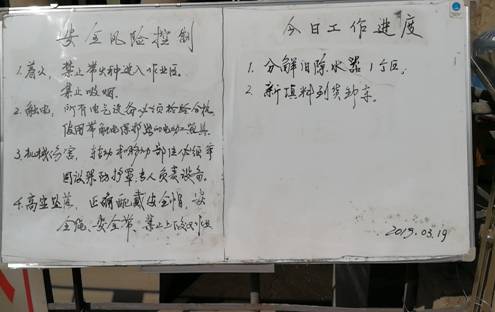 安全风险控制
1. 着火，禁止带火种进入作业区。
禁止吸烟。
2. 触电，所有电气设备必须检验合格，
使用带触电保护器的电动工具。
3. 机械伤害，转动和移动部位必须牢
固设保护罩，专人负责设备。
4. 高空坠落，正确配戴安全帽、安
全绳、安全带，禁止上下交叉作业
今日工作进度
1. 分解旧除水器1个区。
2. 新填料到货卸车。
2019.03.19